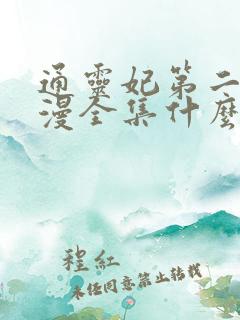 通靈妃第二
漫全集什麼
程紅
未任同意禁止转载